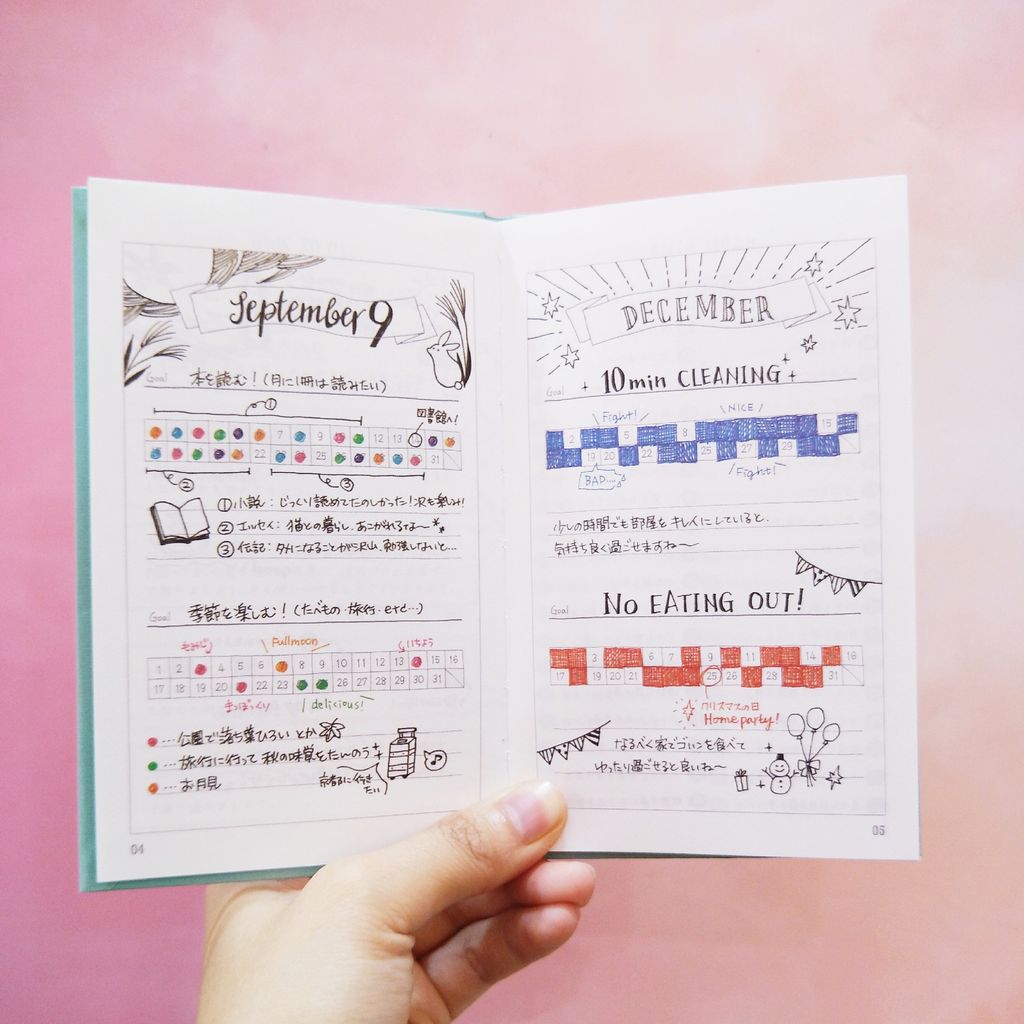 September 9
Goal 本を読む!(月に1冊は読みたい)
①
図書館へ!
7 9 12 13 14
22 25 31
② ③
①小説:じっくり読めてたのしかった!次も楽しみ!
②エッセイ:猫との暮らし、あこがれるな〜
③伝記:タメになることが沢山、勉強しないと…
Goal 季節を楽しむ!(たべもの・旅行・etc…)
もみじ Fullmoon いちょう
1 2 4 5 6 8 9 10 11 12 13 15 16
17 18 19 20 22 23 26 27 28 29 30 31
まつぼっくり delicious!
…公園で落ち葉ひろいとか
…旅行に行って秋の味覚をたんのう
…お月見
京都に行きたい
04
DECEMBER
Goal 10min CLEANING
Fight! NICE
2 5 8 15
19 20 22 25 27 29 31
BAD… Fight!
少しの時間でも部屋をキレイにしていると、
気持ち良く過ごせますね〜
Goal NO EATING OUT!
3 6 7 9 11 14 16
17 19 20 21 25 26 28 31
クリスマスの日
Home party!
なるべく家でゴハンを食べて
ゆったり過ごせると良いね〜
05